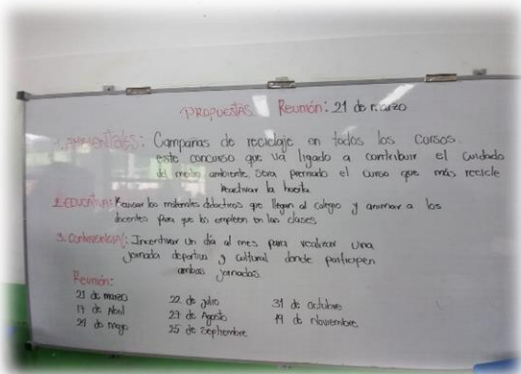 PROPUESTAS Reunión: 21 de marzo
1. AMBIENTALES: Campañas de reciclaje en todos los cursos.
este concurso que va ligado a contribuir el cuidado
del medio ambiente, sera premiado el curso que más recicle
Reactivar la huerta
2. EDUCATIVA: Revisar los materiales didacticos que llegan al colegio y animar a los
docentes para que los empleen en las clases
3. Convivencia: Incentivar un día al mes para realizar una
jornada deportiva y cultural donde participen
ambas jornadas.
Reunión:
21 de marzo 22 de julio 31 de octubre
17 de Abril 27 de Agosto 19 de noviembre
de mayo 25 de Septiembre